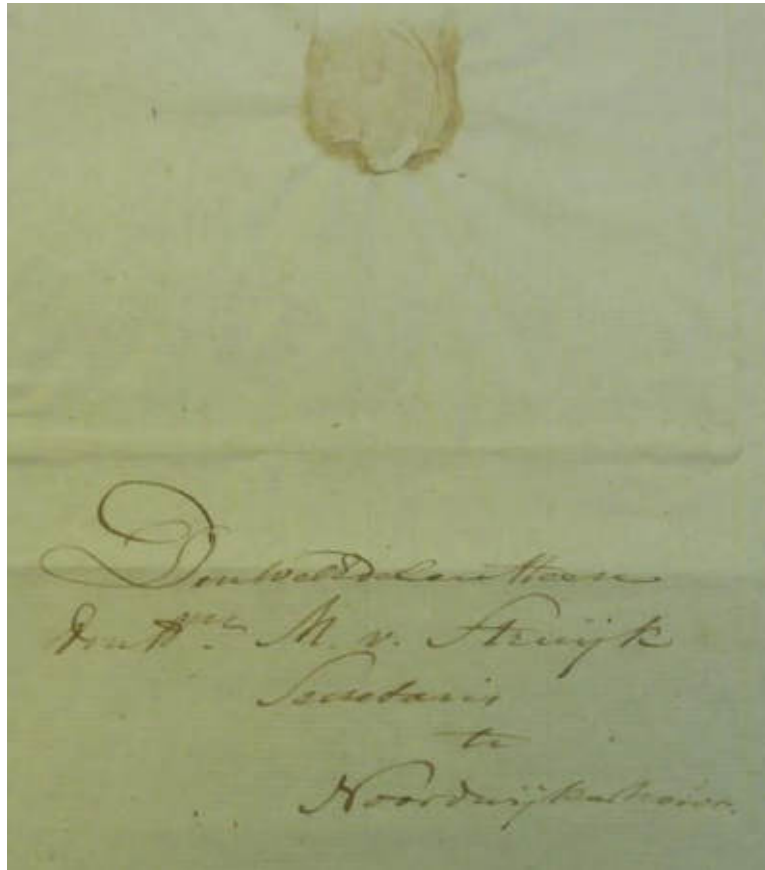 Den WelEdelen Heere
den Hre M. v. Struijk
Secretaris
te
Noordwijkerhout.